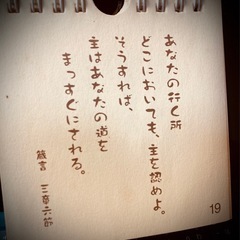 あなたの行く所
どこにおいても、主を認めよ。
そうすれば、
主はあなたの道を
まっすぐにされる。
箴言 三章六節
19